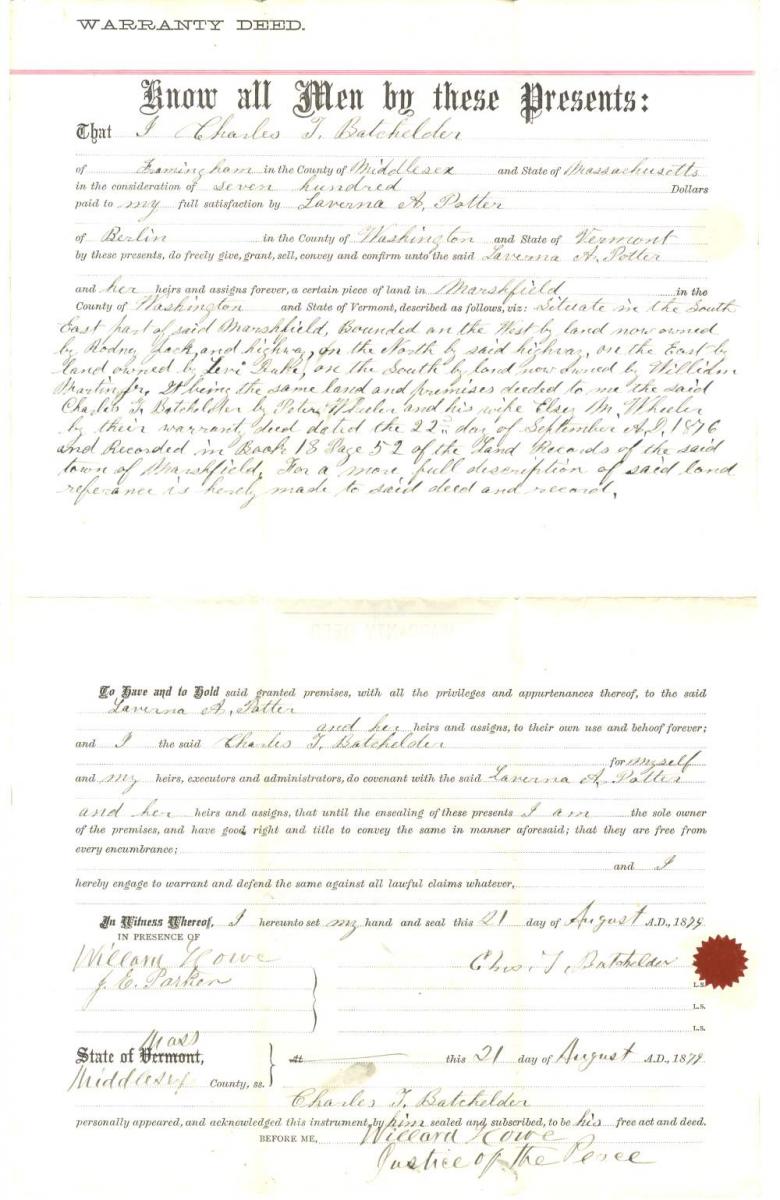 WARRANTY DEED.
Know all Men by these Presents:
That I Charles T. Batchelder
of Framingham in the County of Middlesex and State of Massachusetts
in the consideration of seven hundred Dollars
paid to my full satisfaction by Laverna A. Potter
of Berlin in the County of Washington and State of Vermont
by these presents, do freely give, grant, sell, convey and confirm unto the said Laverna A. Potter
and her heirs and assigns forever, a certain piece of land in Marshfield in the
County of Washington and State of Vermont, described as follows, viz: Situate in the South
East part of said Marshfield, Bounded on the West by land now owned
by Rodney Jack, and highway, on the North by said highway, on the East by
land owned by Levi, on the South by land now owned by William
Martin Jr. It being the same land and premises deeded to me the said
Charles T. Batchelder by Peter Wheeler and his wife Elsey M. Wheeler
by their warrant, deed dated the 22nd day of September A.D. 1876
and Recorded in Book 18 Page 52 of the Land Records of the said
town of Marshfield. For a more full description of said land
referance is hereby made to said deed and record.
To Have and to Hold said granted premises, with all the privileges and appurtenances thereof, to the said
Laverna A. Potter
and her heirs and assigns, to their own use and behoof forever;
and I the said Charles T. Batchelder
for myself
and my heirs, executors and administrators, do covenant with the said Laverna A. Potter
and her heirs and assigns, that until the ensealing of these presents I am the sole owner
of the premises, and have good right and title to convey the same in manner aforesaid; that they are free from
every encumbrance;
and I
hereby engage to warrant and defend the same against all lawful claims whatever,
In Witness Whereof, I hereunto set my hand and seal this 21 day of August A.D., 1879
IN PRESENCE OF
Willard Howe Chas. T. Batchelder
J. E. Parker L.S.
L.S.
L.S.
Mass
State of Vermont, At this 21 day of August A.D., 1879
Middlesex County, ss.
Charles T. Batchelder
personally appeared, and acknowledged this instrument, by him sealed and subscribed, to be his free act and deed.
BEFORE ME, Willard Howe
Justice of the Peace